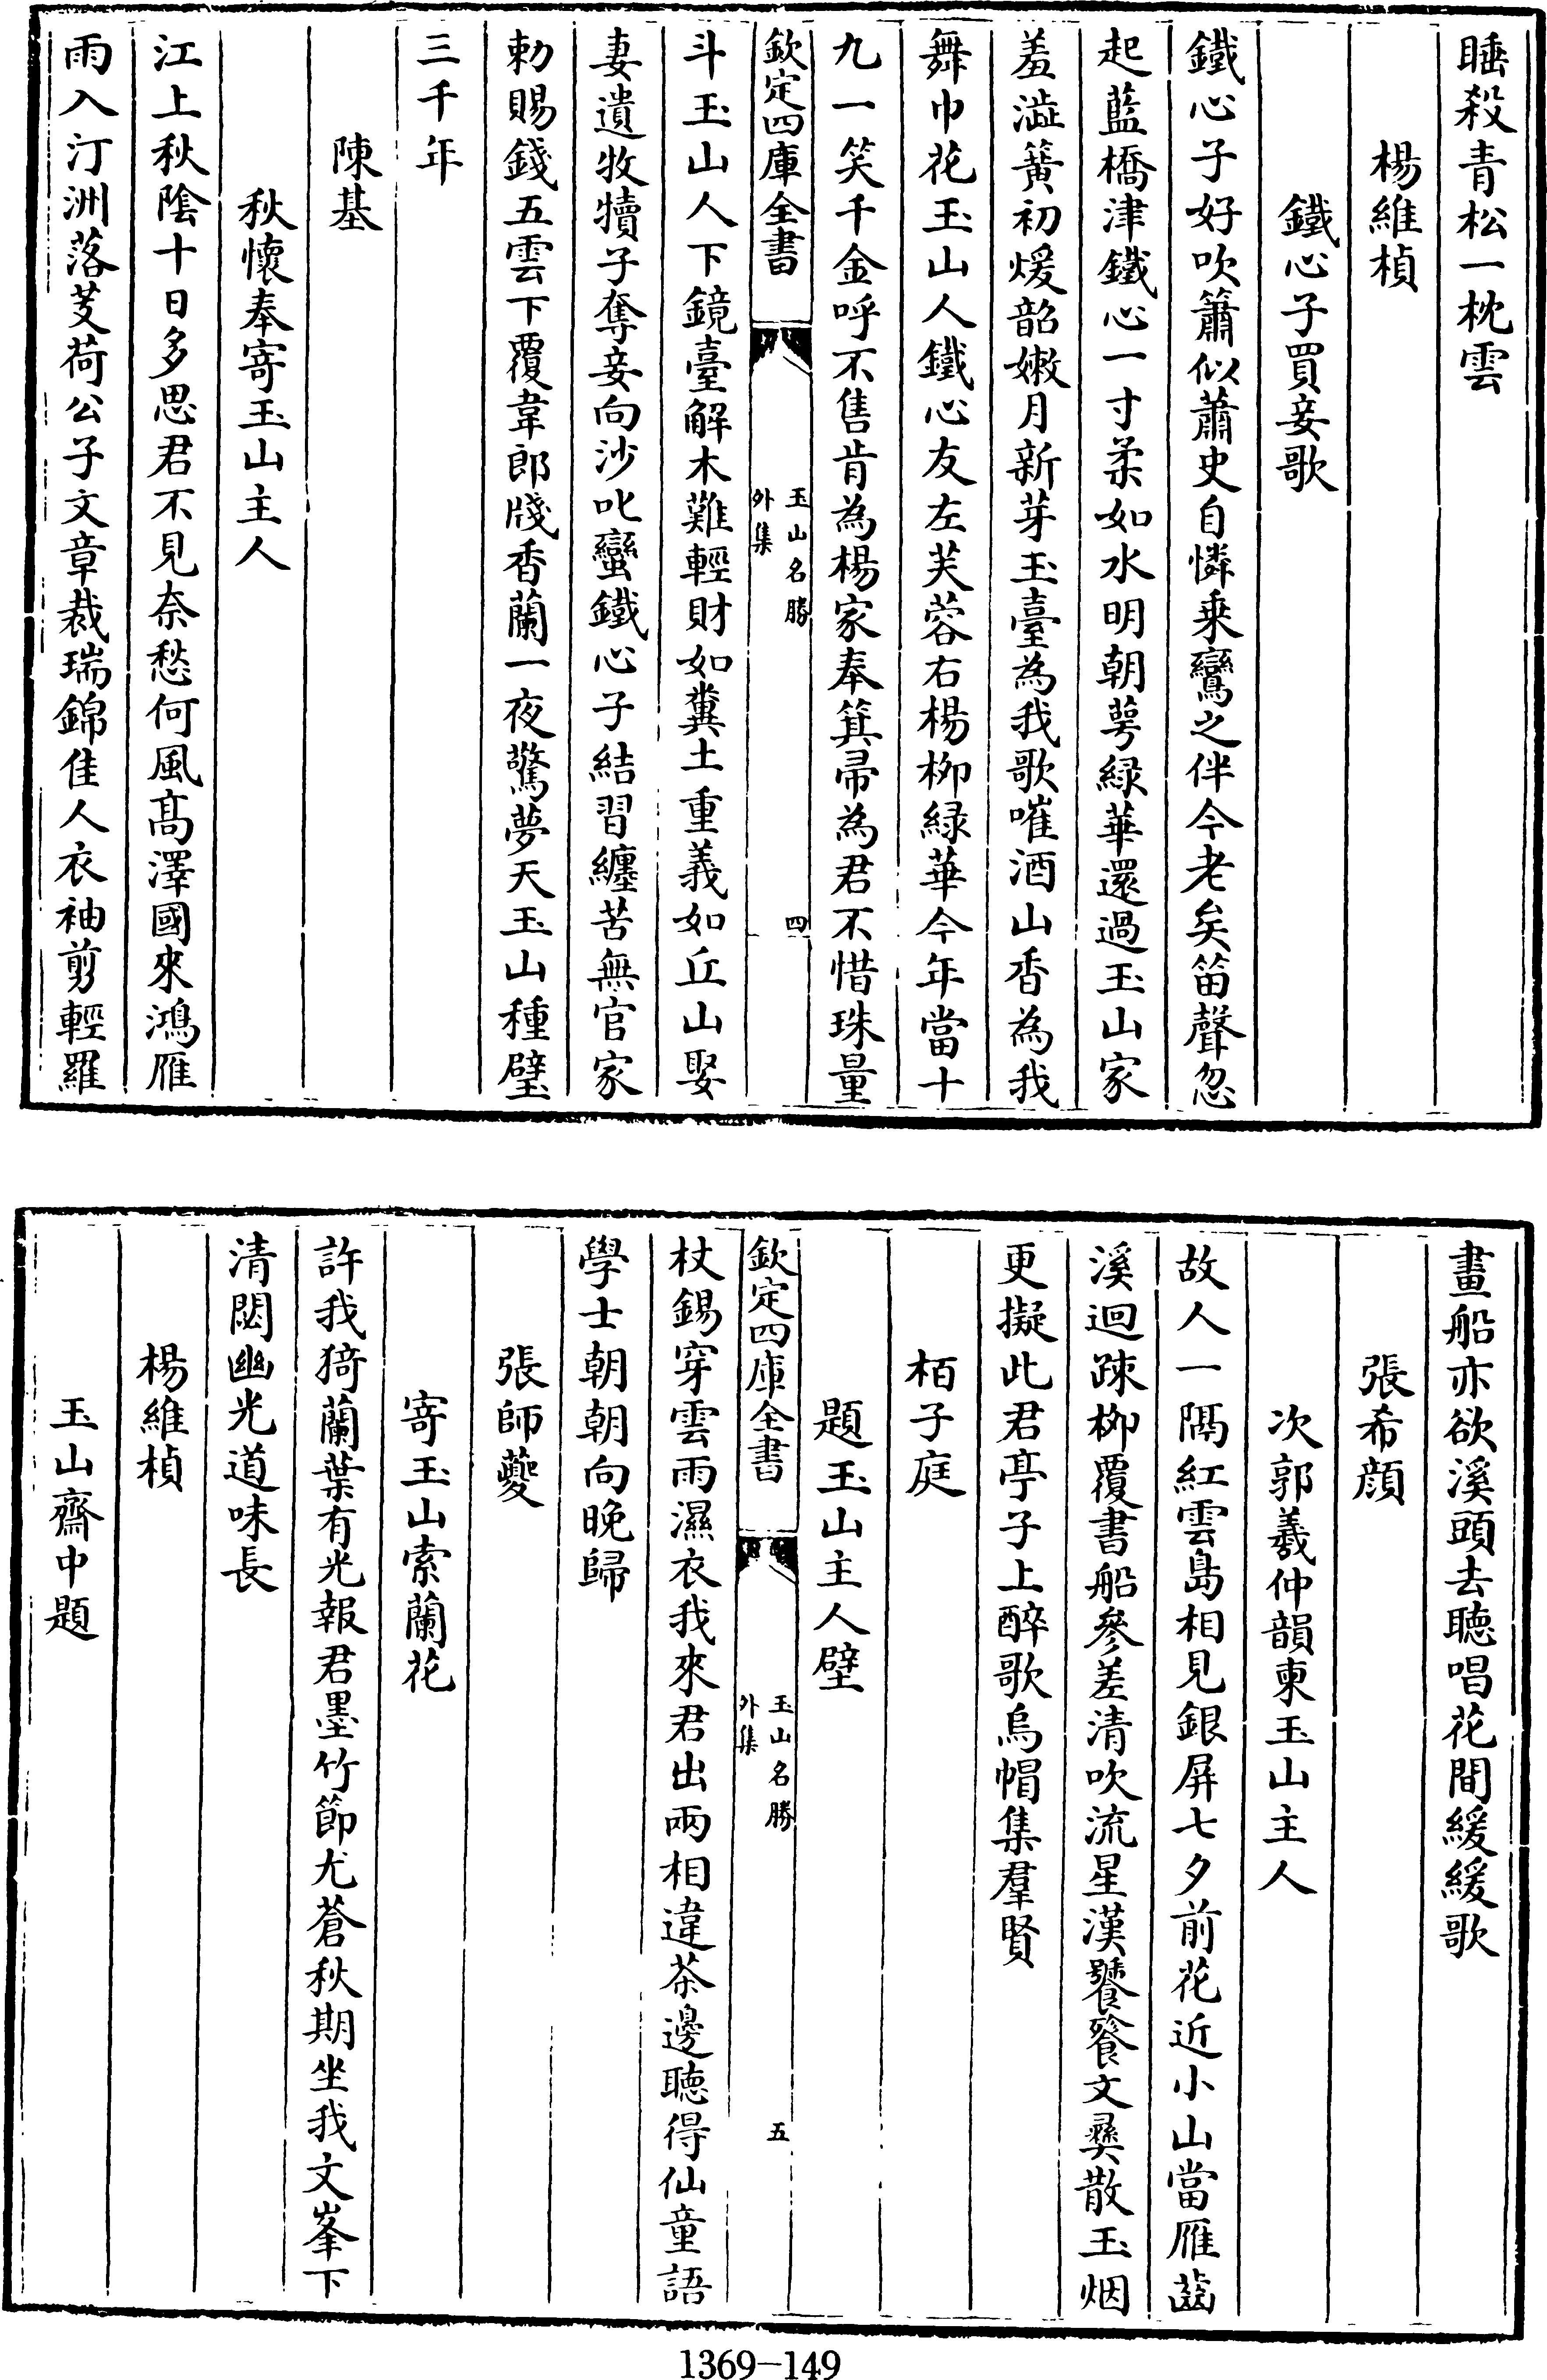 睡殺青松一枕雲
楊維楨
鐵心子買妾歌
鐵心子好吹簫似蕭史自憐乗鸞之伴今老矣笛聲忽
起藍橋津鐵心一寸柔如水明朝萼緑華還過玉山家
羞澁簧初煖韶嫩月新芽玉臺為我歌嗺酒山香為我
舞巾花玉山人鐵心友左芙蓉右楊柳緑華今年當十
九一笑千金呼不售肯為楊家奉箕帚為君不惜珠量
欽定四庫全書
玉山名勝
外集
四
斗玉山人下鏡臺解木難輕財如糞土重義如丘山娶
妻遺牧犢子奪妾向沙叱蠻鐵心子結習纏苦無官家
勅賜錢五雲下覆韋郎牋香蘭一夜驚夢天玉山種璧
三千年
陳基
秋懷奉寄玉山主人
江上秋陰十日多思君不見奈愁何風髙澤國來鴻雁
雨入汀洲落芰荷公子文章裁瑞錦佳人衣袖剪輕羅
畫船亦欲溪頭去聽唱花間緩緩歌
張希顔
次郭羲仲韻柬玉山主人
故人一隔紅雲島相見銀屏七夕前花近小山當雁齒
溪迴踈柳覆書船參差清吹流星漢饕餮文彞散玉烟
更擬此君亭子上醉歌烏帽集羣賢
栢子庭
題玉山主人壁
欽定四庫全書
玉山名勝
外集
五
杖錫穿雲雨濕衣我來君出兩相違茶邊聽得仙童語
學士朝朝向晚歸
張師夔
寄玉山索蘭花
許我猗蘭葉有光報君墨竹節尤蒼秋期坐我文峯下
清閟幽光道味長
楊維楨
玉山齋中題
1369—149